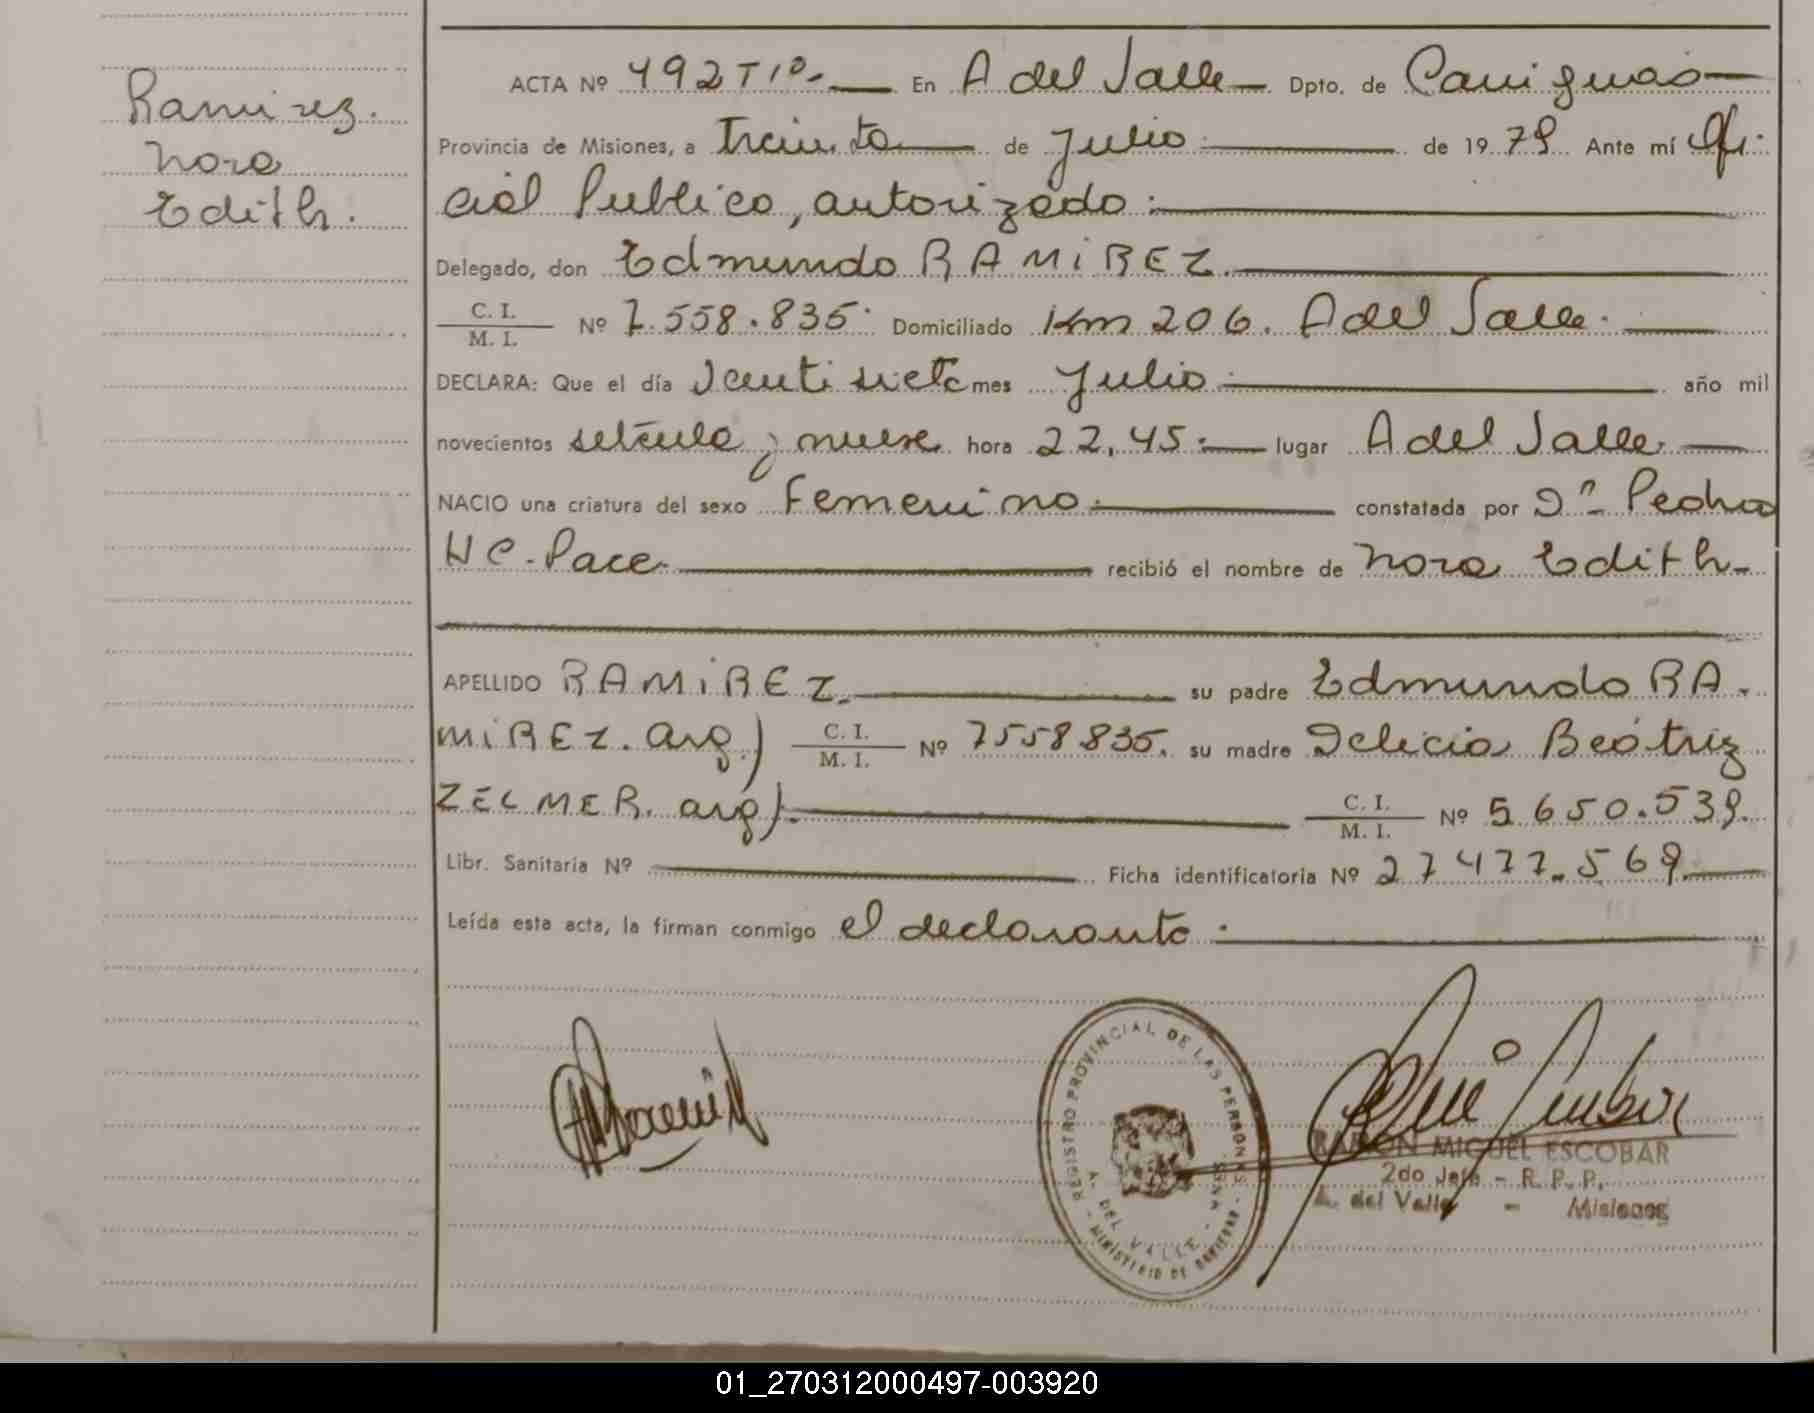 Ramirez.
Nora
Edith.
ACTA Nº 492 Tº 1º.- En A del Valle Dpto. de Cainguas
Provincia de Misiones, a treinta de Julio de 1979 Ante mí Ofi-
cial Publico, autorizado:
Delegado, don Edmundo RAMIREZ.
C. I.
M. I. Nº 7.558.835. Domiciliado Km 206. A del Valle.
DECLARA: Que el día Veintisiete mes Julio año mil
novecientos setenta y nueve hora 22,45. lugar A del Valle
NACIO una criatura del sexo Femenino constatada por Dº Pedro
HC. Pace recibió el nombre de Nora Edith-
APELLIDO RAMIREZ. su padre Edmundo RA-
MIREZ. arg) C. I. M. I. Nº 7558835. su madre Delicia Beatriz
ZELMER. arg). C. I. M. I. Nº 5.650.539.
Libr. Sanitaria Nº Ficha identificatoria Nº 27477.569.
Leída esta acta, la firman conmigo el declarante.
REGISTRO PROVINCIAL DE LAS PERSONAS
A. DEL VALLE - MNES.
MINISTERIO DE GOBIERNO
RAMON MIGUEL ESCOBAR
2do Jefe - R. P. P.
A. del Valle - Misiones
01_270312000497-003920